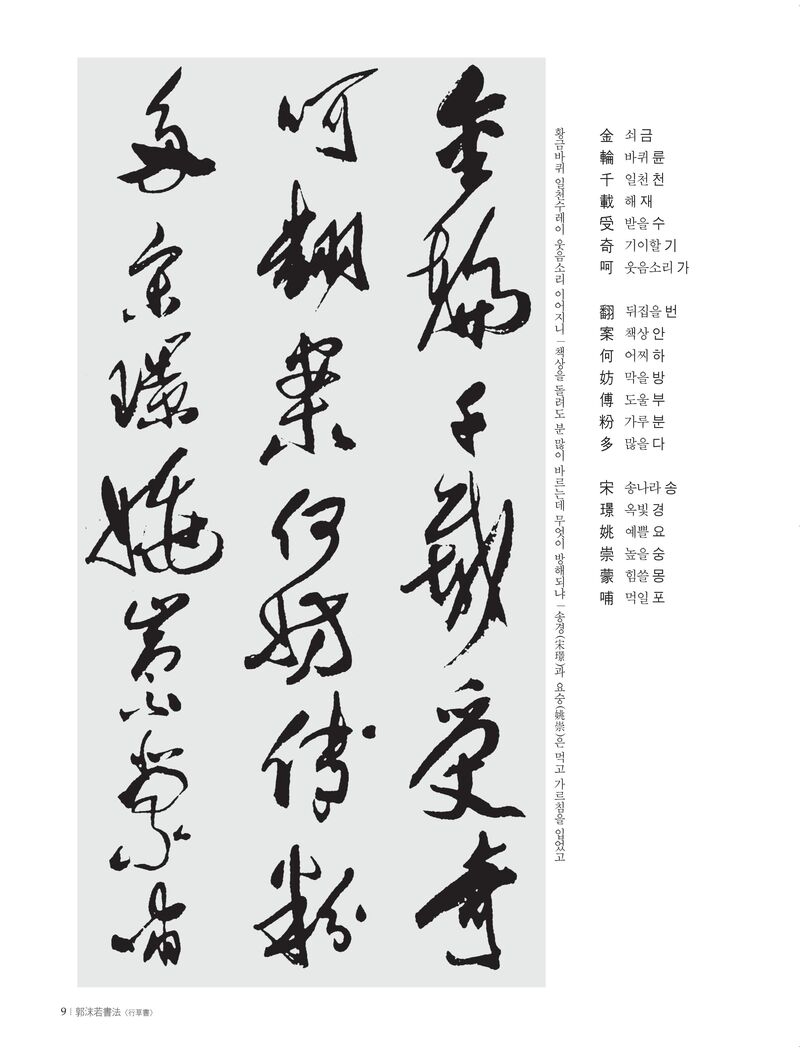 金輪千載受奇
呵翻案何妨傅粉
多宋璟姚崇蒙哺
황금바퀴 일천수레이 웃음소리 이어지니 | 책상을 돌려도 분 많이 바르는데 무엇이 방해되냐 | 송경(宋璟)과 요숭(姚崇)은 먹고 가르침을 입었고
金 쇠 금
輪 바퀴 륜
千 일천 천
載 해 재
受 받을 수
奇 기이할 기
呵 웃음소리 가
翻 뒤집을 번
案 책상 안
何 어찌 하
妨 막을 방
傅 도울 부
粉 가루 분
多 많을 다
宋 송나라 송
璟 옥빛 경
姚 예쁠 요
崇 높을 숭
蒙 힘쓸 몽
哺 먹일 포
9 | 郭沫若書法〈行草書〉